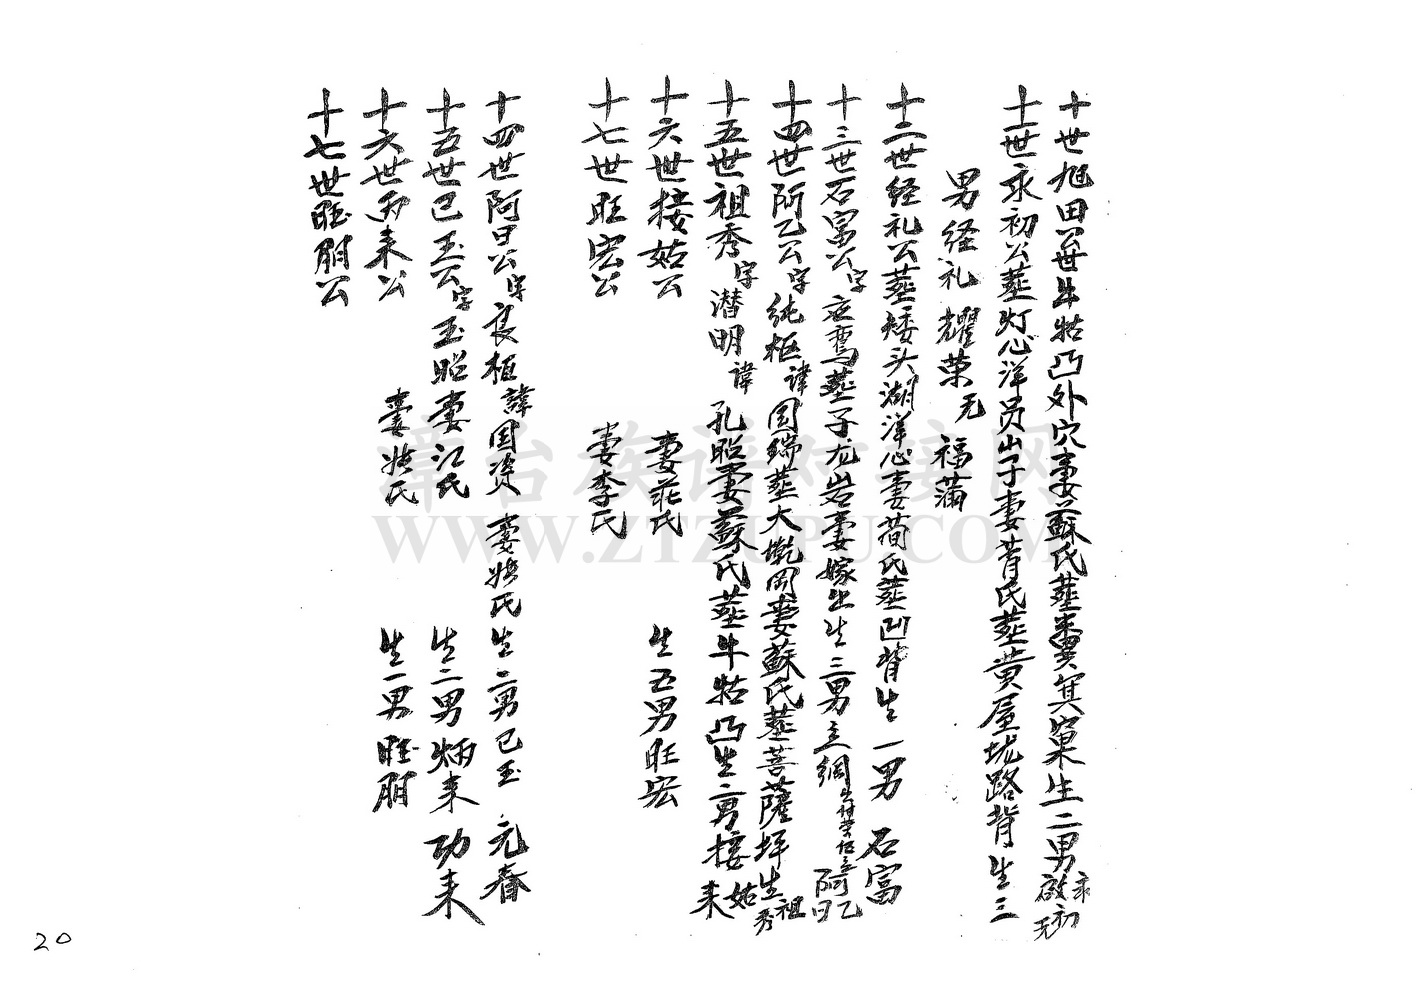 十世旭田公世牛牯凸外穴妻蘇氏葬粪箕窠生二男永初 啟无
十一世永初公葬灯心洋员山子妻曾氏葬黄屋坑路背生三
男経礼 耀荣无 福蒲
十二世経礼公葬矮头湖洋心妻蕳氏葬凹背生一男 石富
十三世石富公字 葬子龙岩妻嫁出生三男立綱 阿乙 阿曰
十四世阿乙公字純枢諱国鋿葬大墘岡妻蘇氏葬菩薩坪生祖秀
十五世祖秀字潜明諱孔昭妻蘇氏葬牛牯凸生二男接姑 来
十六世接姑公 妻莊氏 生五男旺宏
十七世旺宏公 妻李氏
十四世阿曰公字良桓諱国资 妻 氏生二男已玉 元春
十五世已玉公字玉昭妻江氏 生二男炳来 功来
十六世 来公 妻 氏 生一男旺朋
十七世旺朋公
漳台族谱对接网
WWW.ZTZUPU.COM
20